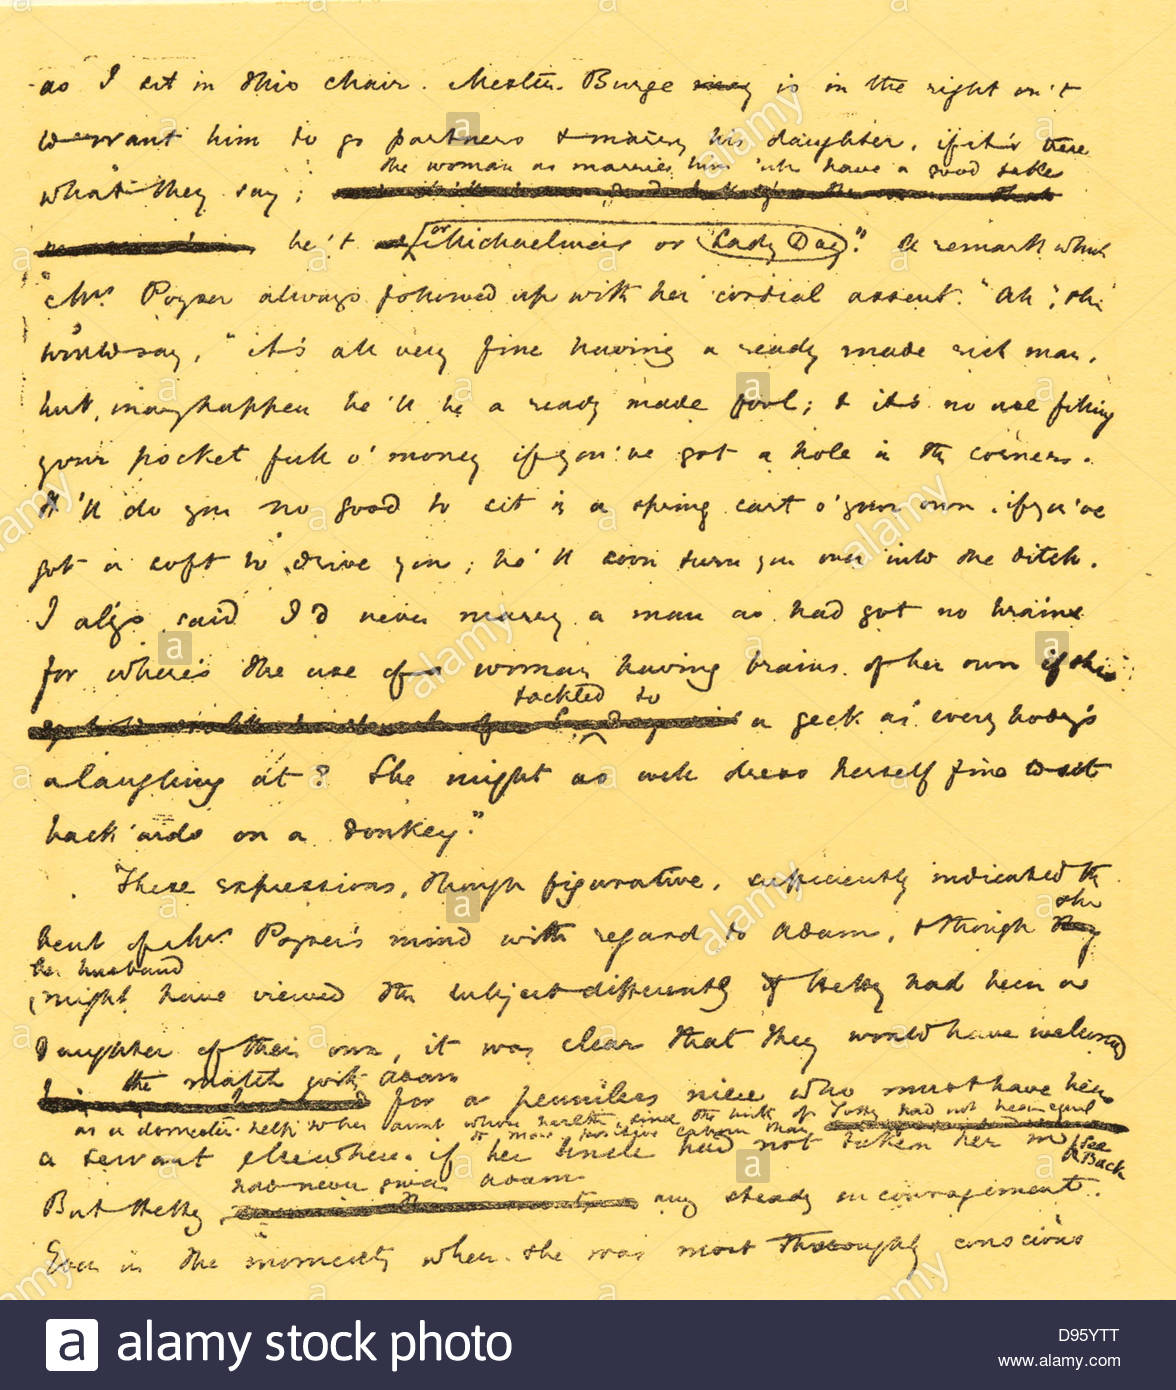 as I sit in this chair. Mester Burge is in the right on't
to want him to go partners & marry his daughter, if it's true
what they say; the woman as marries him 'ull have a good take
be't or Michaelmas or Lady Day." A remark which
Mrs. Poyser always followed up with her cordial assent. "Ah", she
would say, "it's all very fine having a ready made rich man,
but, may happen he'll be a ready made fool; & it's no use filling
your pocket full o' money if you've got a hole in the corners.
It'll do you no good to sit in a spring cart o' your own, if you've
got a soft to drive you; he'll soon turn you over into the ditch.
I al'ys said I'd never marry a man as had got no brains
for where's the use of a woman having brains of her own if she's
tackled to a geck as every body's
a laughing at? She might as well dress herself fine to sit
back'ards on a donkey."
These expressions, though figurative, sufficiently indicated the
bent of Mrs. Poyser's mind with regard to Adam, & though she
& her husband
might have viewed the subject differently if Hetty had been a
daughter of their own, it was clear that they would have welcomed
the match with Adam for a penniless niece who must have been
as a domestic help to her aunt whose health since the birth of Totty had not been equal
to more positive labour than
a servant elsewhere, if her uncle had not taken her in
(See Back
But Hetty had never given Adam any steady encouragement.
Even in the moments when she was most thoroughly conscious
alamy stock photo
D95YTT
www.alamy.com